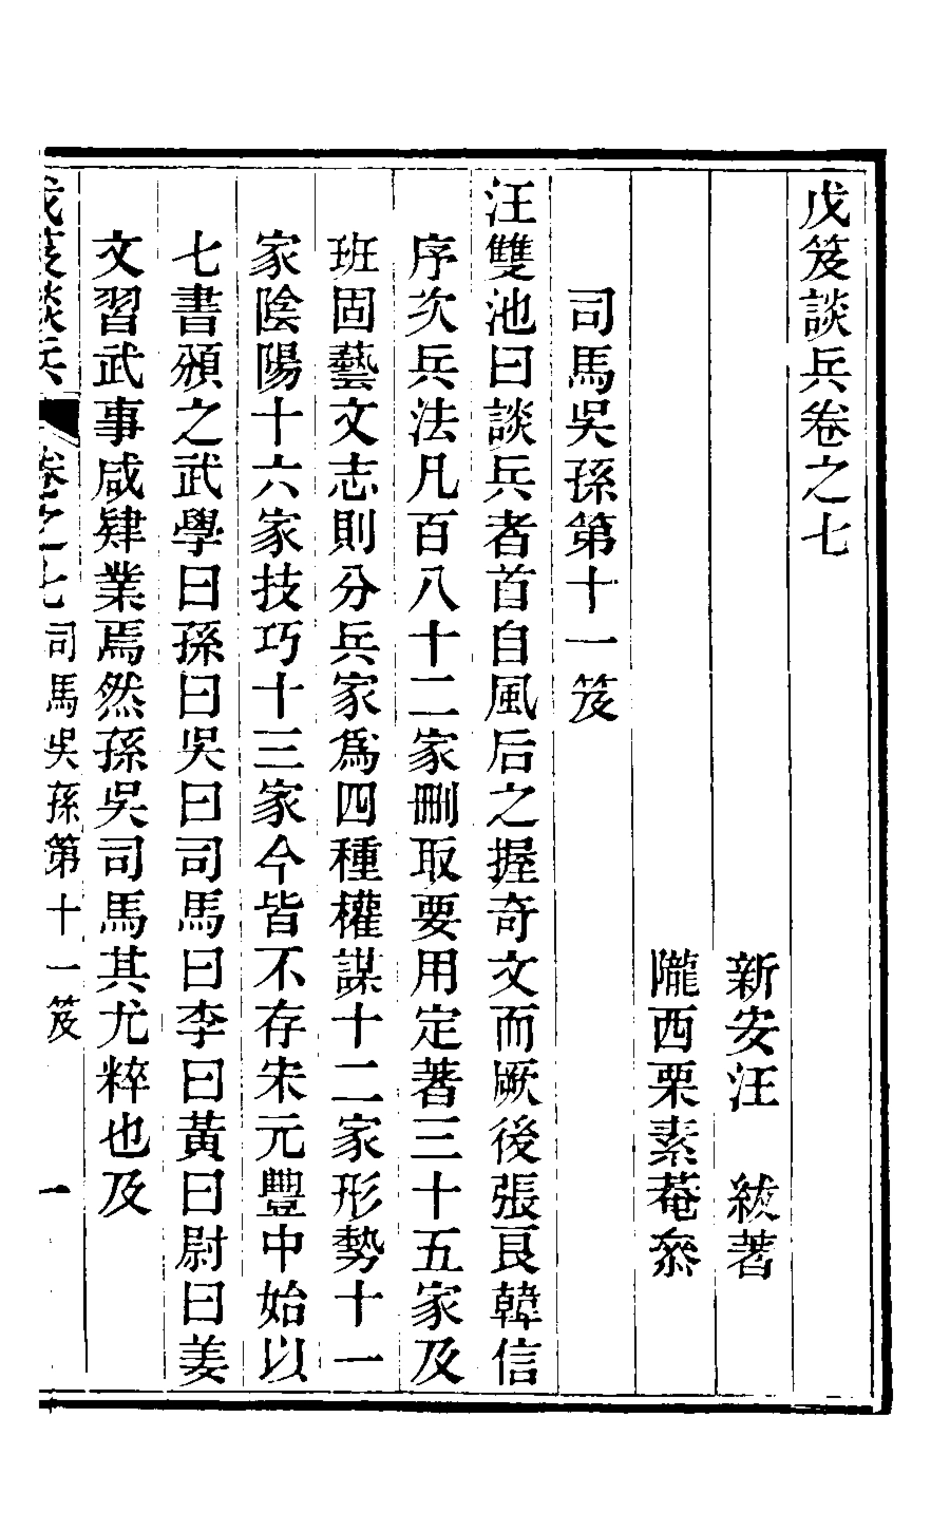 戊笈談兵卷之七
新安汪　紱著
隴西栗素菴叅
司馬吳孫第十一笈
汪雙池曰談兵者首自風后之握奇文而厥後張良韓信
序次兵法凡百八十二家刪取要用定著三十五家及
班固藝文志則分兵家爲四種權謀十二家形勢十一
家陰陽十六家技巧十三家今皆不存宋元豐中始以
七書頒之武學曰孫曰吳曰司馬曰李曰黃曰尉曰姜
文習武事咸肄業焉然孫吳司馬其尤粹也及
戊笈談兵　卷之七司馬吳孫第十一笈　一